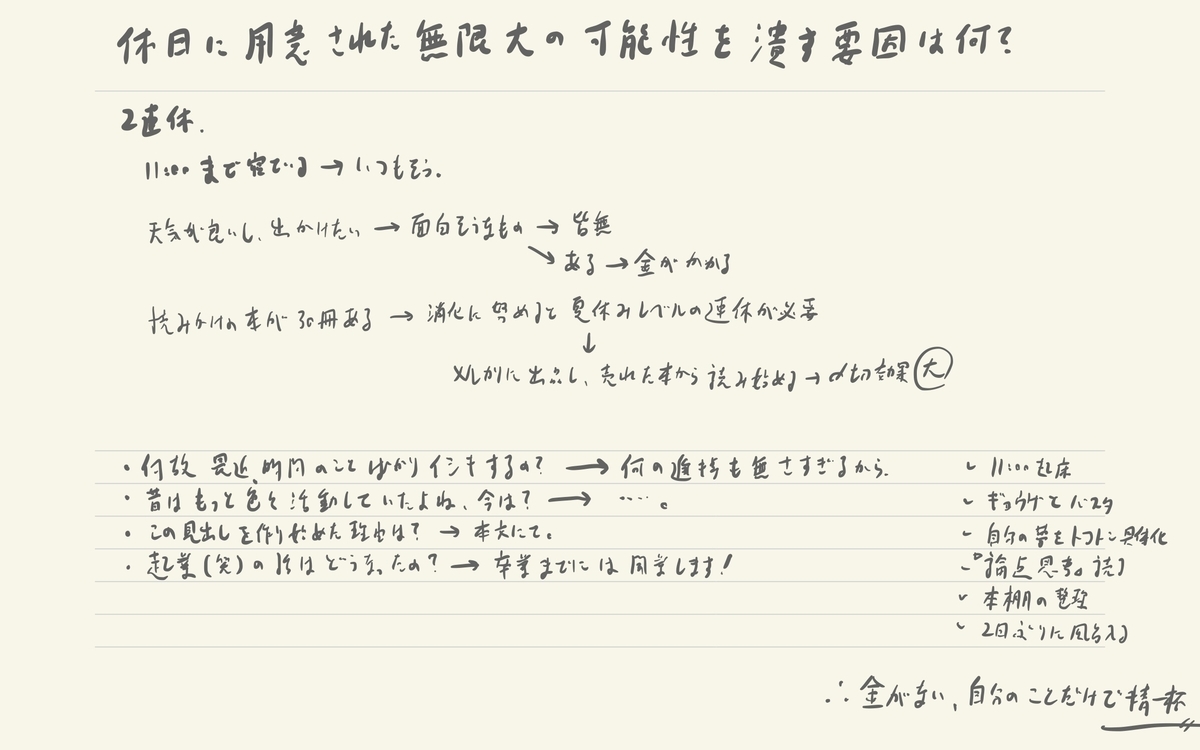 休日に用意された無限大の可能性を潰す要因は何？
2連休.
11:00 まで寝ている → いつもそう.
天気が良いし、出かけたい → 面白そうなもの → 皆無
↘ ある → 金がかかる
読みかけの本が30冊ある → 消化に努めると夏休みレベルの連休が必要
↓
メルカリに出品し、売れた本から読み始める → 〆切効果 大
・何故 最近、時間のことばかりイシキするの？ → 何の進捗も無さすぎるから.
・昔はもっと色々活動していたよね、今は？ → ‥‥。
・この見出しを作り始めた理由は？ → 本大にて。
・起業(笑)の件はどうなったの？ → 卒業までには開業します！
✓ 11:00 起床
✓ ギョウザとパスタ
✓ 自分の夢をトコトン具体化
✓『論点思考』読了
✓ 本棚の整理
✓ 2日ぶりに風呂入る
∴ 金がない、自分のことだけで精一杯